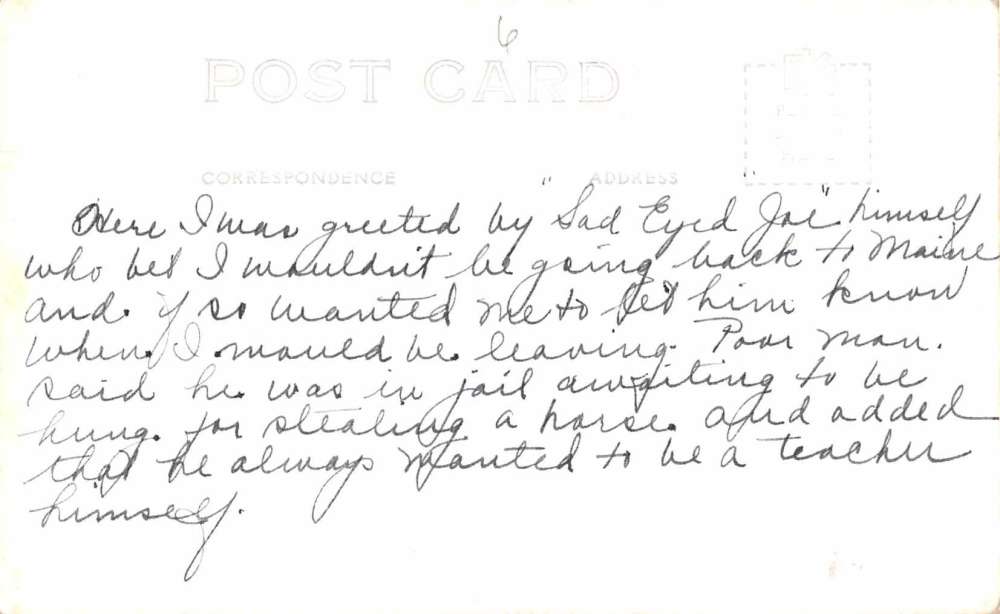 6
POST CARD
CORRESPONDENCE ADDRESS
Here I was greeted by "Sad Eyed Joe" himself
who bet I wouldn't be going back to Maine
and. if so wanted me to let him know
when. I would be. leaving. Poor man.
said he was in jail awaiting to be
hung. for stealing a horse. and added
that he always wanted to be a teacher
himself.